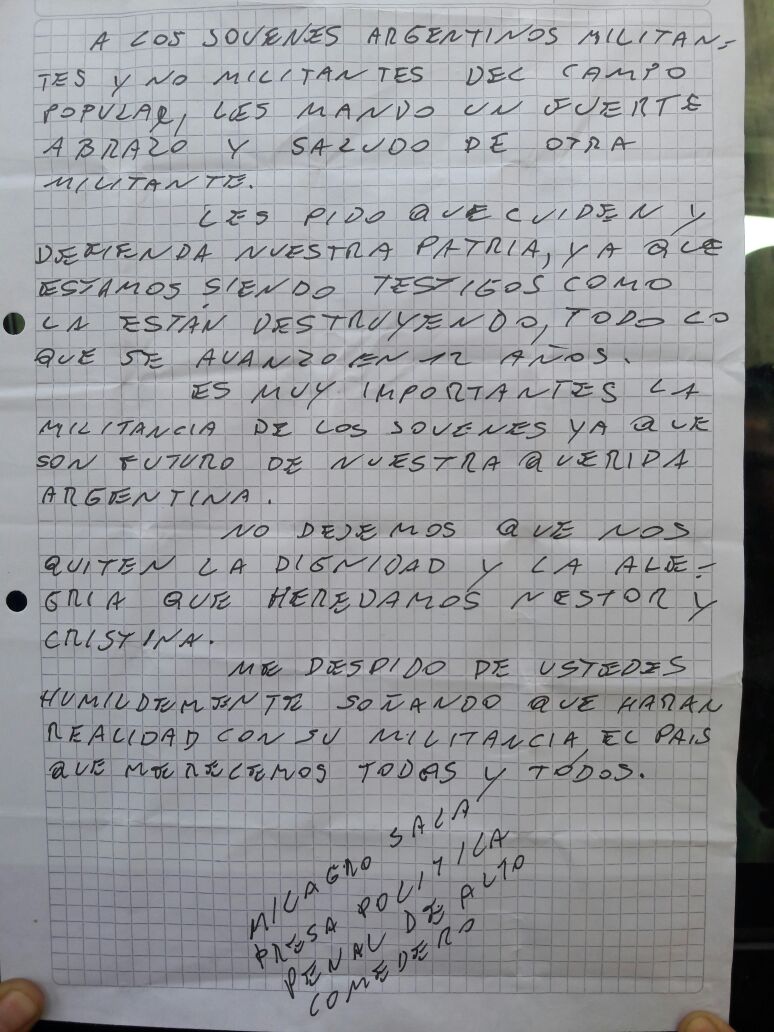 A LOS JOVENES ARGENTINOS MILITAN-
TES Y NO MILITANTES DEL CAMPO
POPULAR, LES MANDO UN FUERTE
ABRAZO Y SALUDO DE OTRA
MILITANTE.
LES PIDO QUE CUIDEN Y
DEFIENDA NUESTRA PATRIA, YA QUE
ESTAMOS SIENDO TESTIGOS COMO
LA ESTÁN DESTRUYENDO, TODO LO
QUE SE AVANZO EN 12 AÑOS.
ES MUY IMPORTANTES LA
MILITANCIA DE LOS JOVENES YA QUE
SON FUTURO DE NUESTRA QUERIDA
ARGENTINA.
NO DEJEMOS QUE NOS
QUITEN LA DIGNIDAD Y LA ALE-
GRIA QUE HEREDAMOS NESTOR Y
CRISTINA.
ME DESPIDO DE USTEDES
HUMILDEMENTE SOÑANDO QUE HARAN
REALIDAD CON SU MILITANCIA, EL PAIS
QUE MERECEMOS TODAS Y TODOS.
MILAGRO SALA
PRESA POLITICA
PENAL DE ALTO
COMEDERO